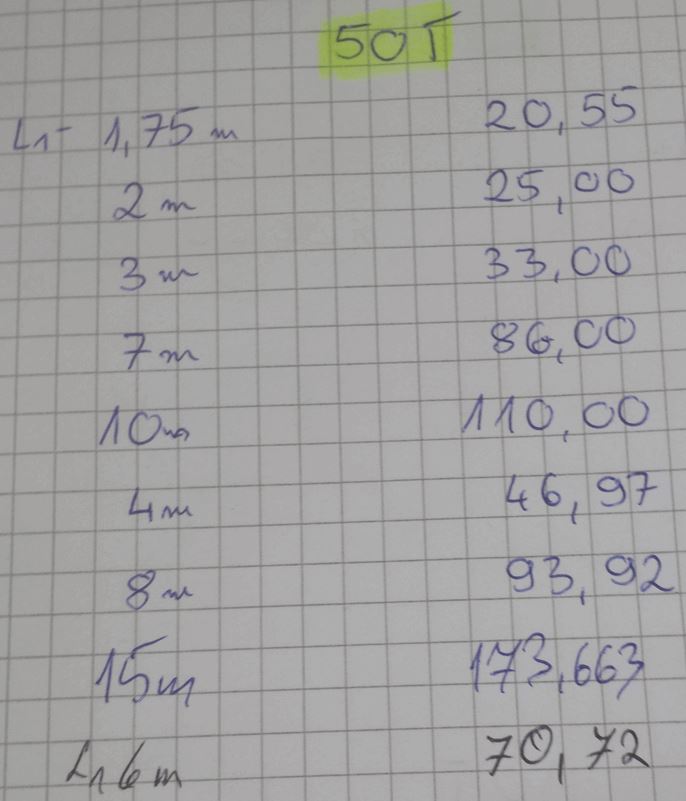 50T
L1- 1,75 m 20,55
2 m 25,00
3 m 33,00
7 m 86,00
10 m 110,00
4 m 46,97
8 m 93,92
15 m 173,663
L1 6 m 70,72